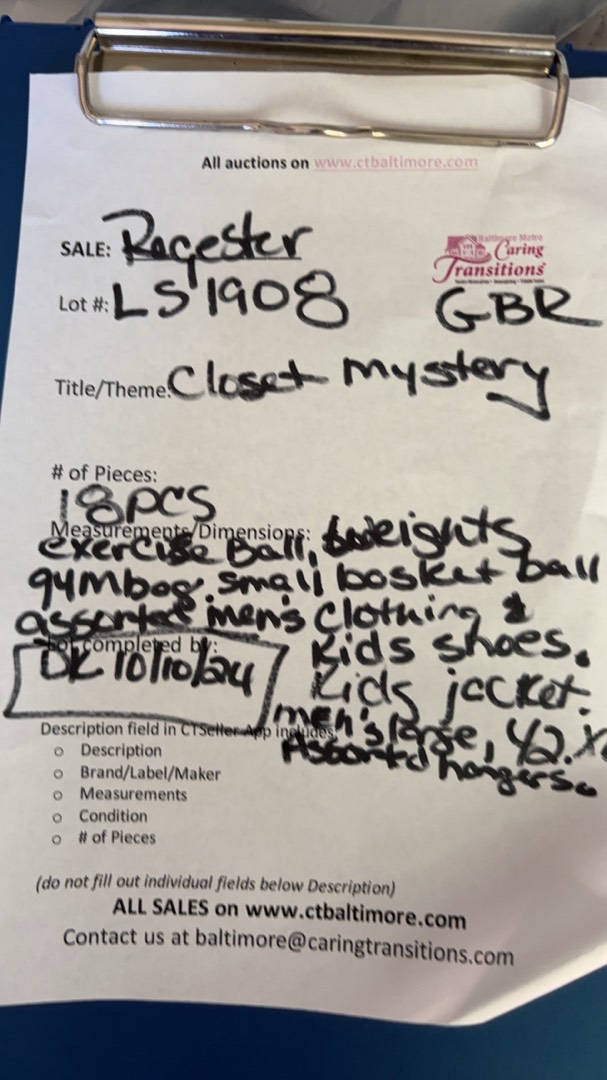 All auctions on www.ctbaltimore.com
SALE: Regester
Baltimore Metro
Caring
Transitions
Lot #: LS1908 GBR
Title/Theme: Closet mystery
# of Pieces:
18pcs
Measurements/Dimensions:
exercise Ball, weights
gymbag. small basket ball
assorted men's clothing &
completed by:
Kids shoes.
DK 10/10/24
Kids jacket.
men's large, 42.
Description field in CTSeller App includes:
Assorted hangers.
o Description
o Brand/Label/Maker
o Measurements
o Condition
o # of Pieces
(do not fill out individual fields below Description)
ALL SALES on www.ctbaltimore.com
Contact us at baltimore@caringtransitions.com